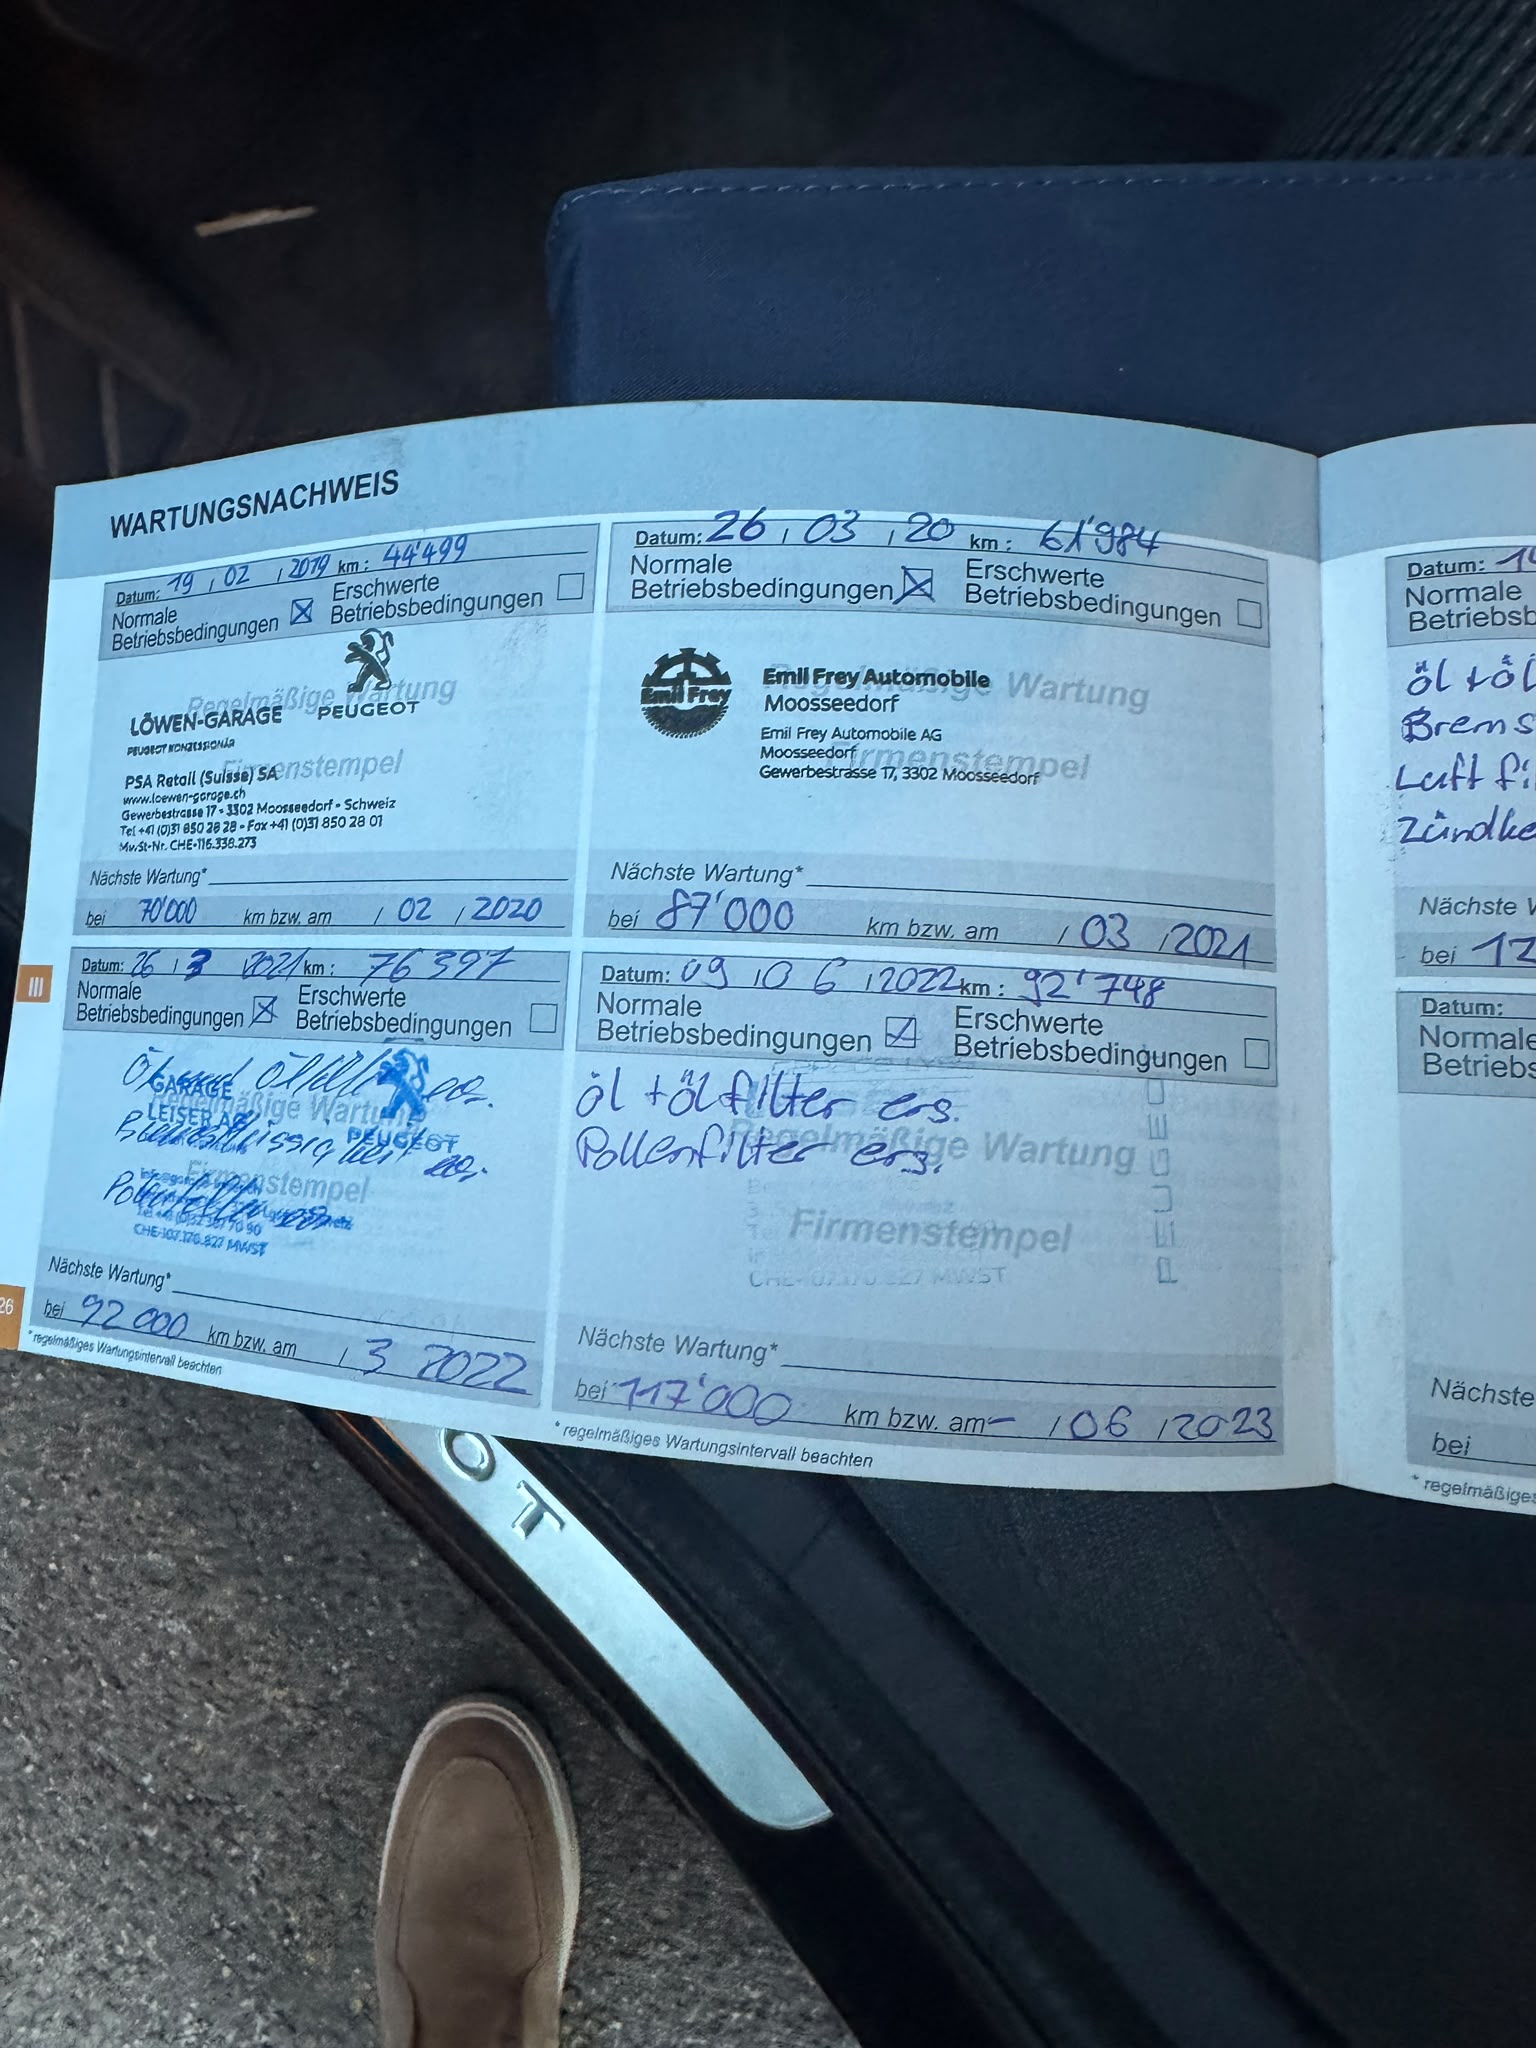 WARTUNGSNACHWEIS
Datum: 19 / 02 / 2019 km : 44'499
Normale
Betriebsbedingungen
Erschwerte
Betriebsbedingungen
Regelmäßige Wartung
LÖWEN-GARAGE PEUGEOT
PEUGEOT KONZESSIONÄR
Firmenstempel
PSA Retail (Suisse) SA
www.loewen-garage.ch
Gewerbestrasse 17 - 3302 Moosseedorf - Schweiz
Tel +41 (0)31 850 28 28 - Fax +41 (0)31 850 28 01
MwSt-Nr. CHE-116.338.273
Nächste Wartung*
bei 70'000 km bzw. am / 02 / 2020
Datum: 26 / 03 / 20 km : 61'984
Normale
Betriebsbedingungen
Erschwerte
Betriebsbedingungen
Regelmäßige Wartung
Emil Frey
Emil Frey Automobile
Moosseedorf
Firmenstempel
Emil Frey Automobile AG
Moosseedorf
Gewerbestrasse 17, 3302 Moosseedorf
Nächste Wartung*
bei 87'000 km bzw. am / 03 / 2021
III
Datum: 26 / 3 2021 km : 76397
Normale
Betriebsbedingungen
Erschwerte
Betriebsbedingungen
Öl und Ölfilter
GARAGE
Regelmäßige Wartung
LEISER AG
PEUGEOT
Bremsflüssigkeit
Firmenstempel
Pollenfilter
CHE-107.170.827 MWST
Nächste Wartung*
bei 92000 km bzw. am / 3 2022
* regelmäßiges Wartungsintervall beachten
26
Datum: 09 / 06 / 2022 km : 92'748
Normale
Betriebsbedingungen
Erschwerte
Betriebsbedingungen
öl + ölfilter ers.
Pollenfilter ers.
Regelmäßige Wartung
Firmenstempel
PEUGEOT
CHE-107.170.827 MWST
Nächste Wartung*
bei 117'000 km bzw. am - / 06 / 2023
* regelmäßiges Wartungsintervall beachten
Datum: 14
Normale
Betriebsb
öl + öl
Brems
Luftfi
Zündke
Nächste W
bei 12
Datum:
Normale
Betriebs
Nächste
bei
* regelmäßiges
OT